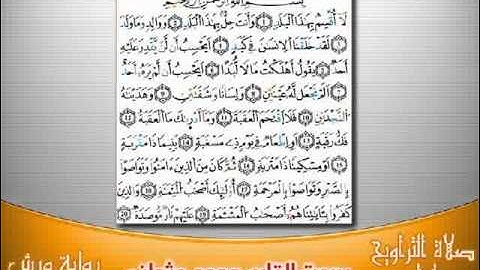 بسم الله الرحمن الرحيم
لَا أُقْسِمُ بِهَٰذَا الْبَلَدِ ① وَأَنتَ حِلٌّ بِهَٰذَا الْبَلَدِ ② وَوَالِدٍ وَمَا وَلَدَ
③ لَقَدْ خَلَقْنَا الْإِنسَٰنَ فِي كَبَدٍ ④ أَيَحْسِبُ أَن لَّنْ يَّقْدِرَ عَلَيْهِ
أَحَدٌ ⑤ يَقُولُ أَهْلَكْتُ مَالًا لُّبَدًا ⑥ أَيَحْسِبُ أَن لَّمْ يَرَهُ أَحَدٌ
⑦ أَلَمْ نَجْعَل لَّهُ عَيْنَيْنِ ⑧ وَلِسَانًا وَشَفَتَيْنِ ⑨ وَهَدَيْنَٰهُ
النَّجْدَيْنِ ⑩ فَلَا اقْتَحَمَ الْعَقَبَةَ ⑪ وَمَا أَدْرَىٰكَ مَا الْعَقَبَةُ ⑫
فَكُّ رَقَبَةٍ ⑬ أَوْ إِطْعَٰمٌ فِي يَوْمٍ ذِي مَسْغَبَةٍ ⑭ يَتِيمًا ذَا مَقْرَبَةٍ
⑮ أَوْ مِسْكِينًا ذَا مَتْرَبَةٍ ⑯ ثُمَّ كَانَ مِنَ الَّذِينَ ءَامَنُوا وَتَوَاصَوْا
بِالصَّبْرِ وَتَوَاصَوْا بِالْمَرْحَمَةِ ⑰ أُوْلَٰئِكَ أَصْحَٰبُ الْمَيْمَنَةِ ⑱ وَالَّذِينَ
كَفَرُوا بِـَٔايَٰتِنَا هُمْ أَصْحَٰبُ الْمَشْـَٔمَةِ ⑲ عَلَيْهِمْ نَارٌ مُّوصَدَةٌ ⑳
صلاة التراويح
رواية ورش